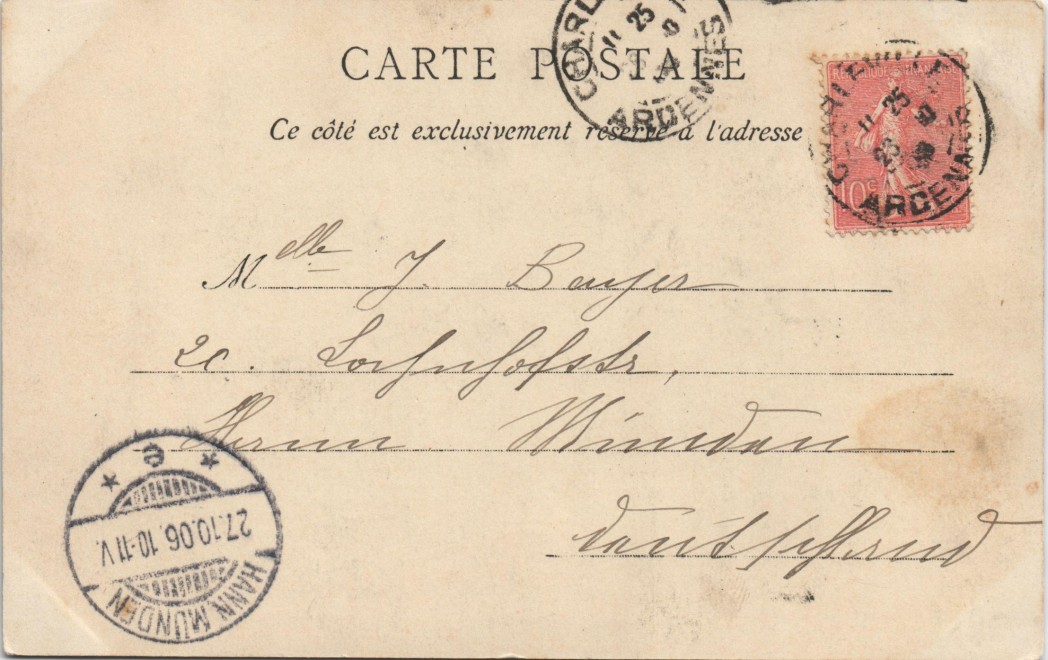 CARTE POSTALE
Ce côté est exclusivement réservé à l'adresse
CHARLEVILLE
11 25
ARDENNES
REPUBLIQUE FRANÇAISE
10c
CHARLEVILLE
11 25
23
ARDENNES
Melle J. Beyer
20. Bahnhofstr,
Hann Münden
Deutschland
e
27.10.06. 10-11 V.
HANN. MÜNDEN